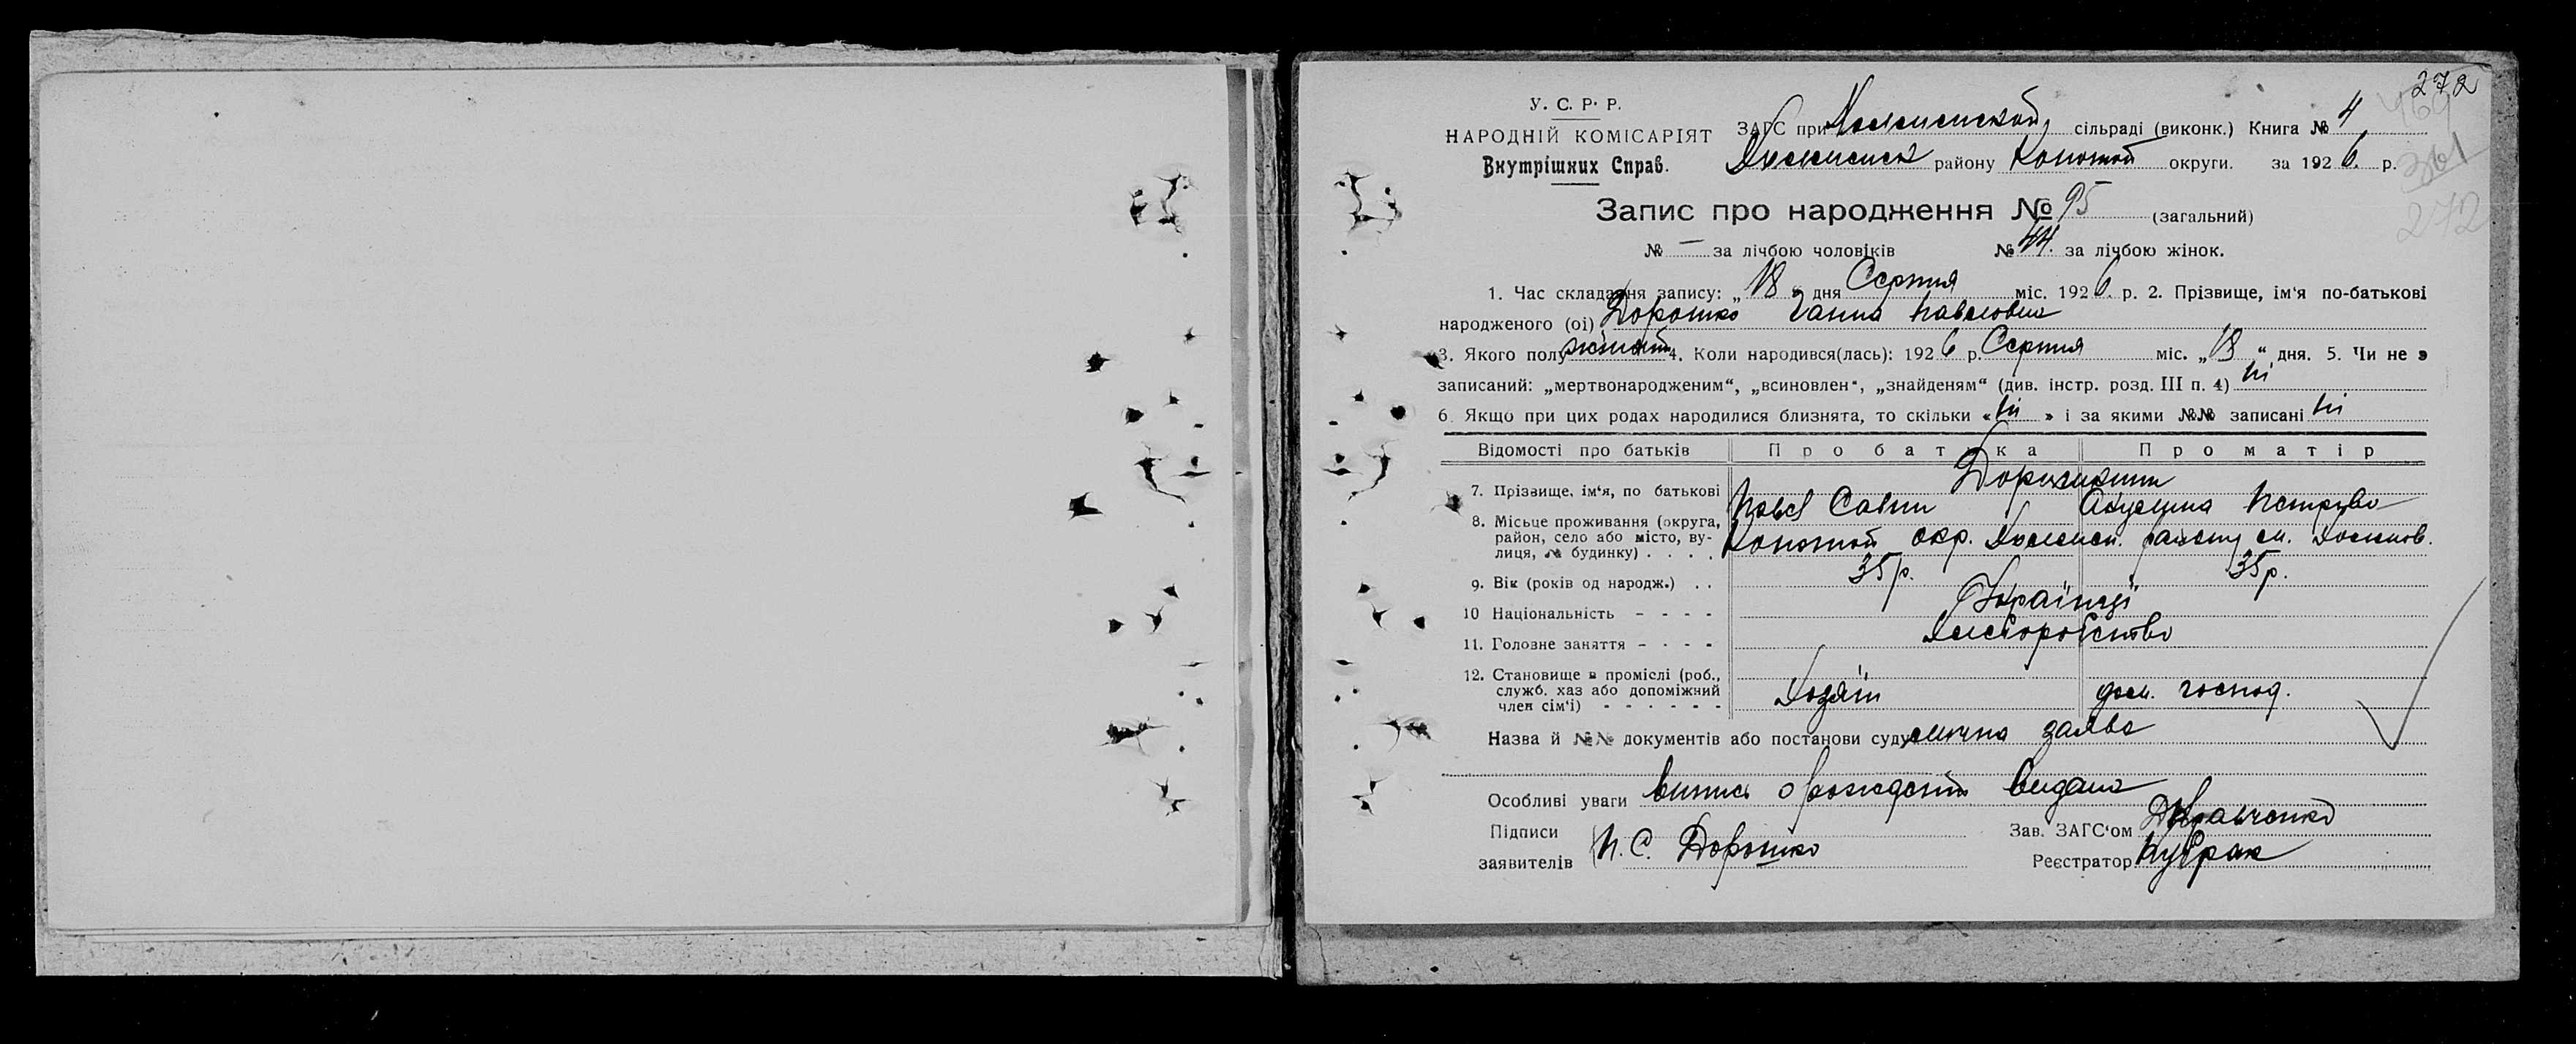 272
У. С. Р. Р.
НАРОДНІЙ КОМІСАРІЯТ
Внутрішних Справ.
ЗАГС при сільраді (виконк.) Книга № 4
району Конотоп округи. за 1926 р.
361
272
Запис про народження № 95 (загальний)
№ — за лічбою чоловіків № 44. за лічбою жінок.
1. Час складання запису: „18“ дня Серпня міс. 1926. р. 2. Прізвище, ім'я по-батькові
народженого (ої) Дорошко Ганна Павловна
3. Якого полу жіночт 4. Коли народився(лась): 1926 р. Серпня міс. „18“ дня. 5. Чи не з
записаний: „мертвонародженим“, „всиновлен“, „знайденям“ (див. інстр. розд. III п. 4) Ні
6. Якщо при цих родах народилися близнята, то скільки «Ні» і за якими №№ записані Ні
Відомості про батьків Про батька Про матір
7. Прізвище, ім'я, по батькові
Павел Савин Петрово
8. Місьце проживання (округа,
район, село або місто, ву-
лиця, № будинку) . . . .
Конотоп окр. району
9. Вік (років од народж.) . . 35 р. 35 р.
10 Національність - - - - Українці
11. Головне заняття - - - - Хліборобство
12. Становище в промислі (роб.,
служб. хаз або допоміжний
член сім'ї) - - - - - -
Хозяїн дом. господ.
Назва й №№ документів або постанови суду Улична заява
Особливі уваги Випись о рождении видана
Підписи
заявителів П. С. Дорошко
Зав. ЗАГС'ом Кравченко
Реєстратор